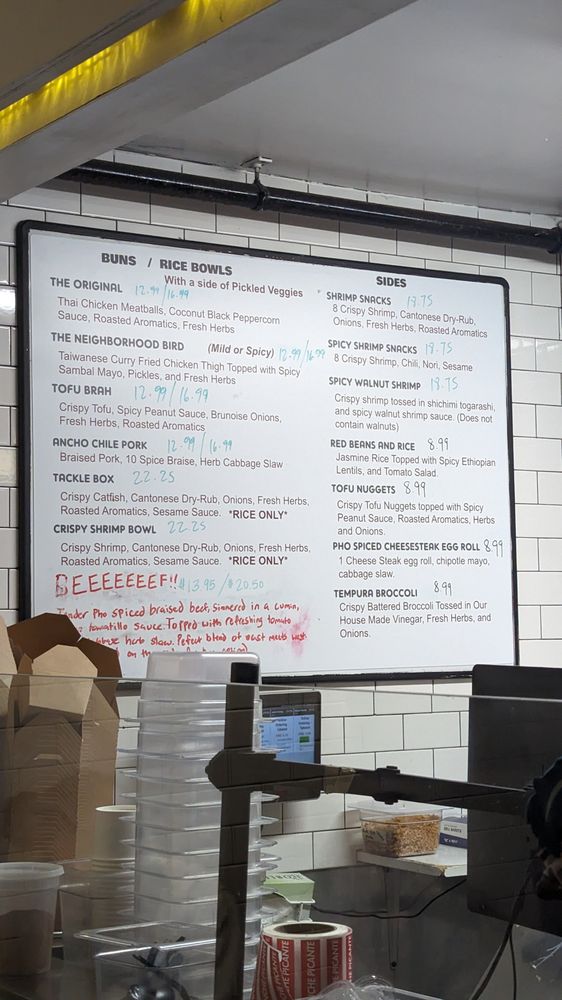 BUNS / RICE BOWLS
With a side of Pickled Veggies
THE ORIGINAL 12.99/16.99
Thai Chicken Meatballs, Coconut Black Peppercorn
Sauce, Roasted Aromatics, Fresh Herbs
THE NEIGHBORHOOD BIRD (Mild or Spicy) 12.99/16.99
Taiwanese Curry Fried Chicken Thigh Topped with Spicy
Sambal Mayo, Pickles, and Fresh Herbs
TOFU BRAH 12.99/16.99
Crispy Tofu, Spicy Peanut Sauce, Brunoise Onions,
Fresh Herbs, Roasted Aromatics
ANCHO CHILE PORK 12.99/16.99
Braised Pork, 10 Spice Braise, Herb Cabbage Slaw
TACKLE BOX 22.25
Crispy Catfish, Cantonese Dry-Rub, Onions, Fresh Herbs,
Roasted Aromatics, Sesame Sauce. *RICE ONLY*
CRISPY SHRIMP BOWL 22.25
Crispy Shrimp, Cantonese Dry-Rub, Onions, Fresh Herbs,
Roasted Aromatics, Sesame Sauce. *RICE ONLY*
BEEEEEEEF!! $13.95/$20.50
Tender Pho spiced braised beef, simmered in a cumin,
tomatillo sauce. Topped with refreshing tomato
herb slaw. Perfect blend of east meets west
on the
SIDES
SHRIMP SNACKS 18.75
8 Crispy Shrimp, Cantonese Dry-Rub,
Onions, Fresh Herbs, Roasted Aromatics
SPICY SHRIMP SNACKS 18.75
8 Crispy Shrimp, Chili, Nori, Sesame
SPICY WALNUT SHRIMP 18.75
Crispy shrimp tossed in shichimi togarashi,
and spicy walnut shrimp sauce. (Does not
contain walnuts)
RED BEANS AND RICE 8.99
Jasmine Rice Topped with Spicy Ethiopian
Lentils, and Tomato Salad.
TOFU NUGGETS 8.99
Crispy Tofu Nuggets topped with Spicy
Peanut Sauce, Roasted Aromatics, Herbs
and Onions.
PHO SPICED CHEESESTEAK EGG ROLL 8.99
1 Cheese Steak egg roll, chipotle mayo,
cabbage slaw.
TEMPURA BROCCOLI 8.99
Crispy Battered Broccoli Tossed in Our
House Made Vinegar, Fresh Herbs, and
Onions.
PICANTE